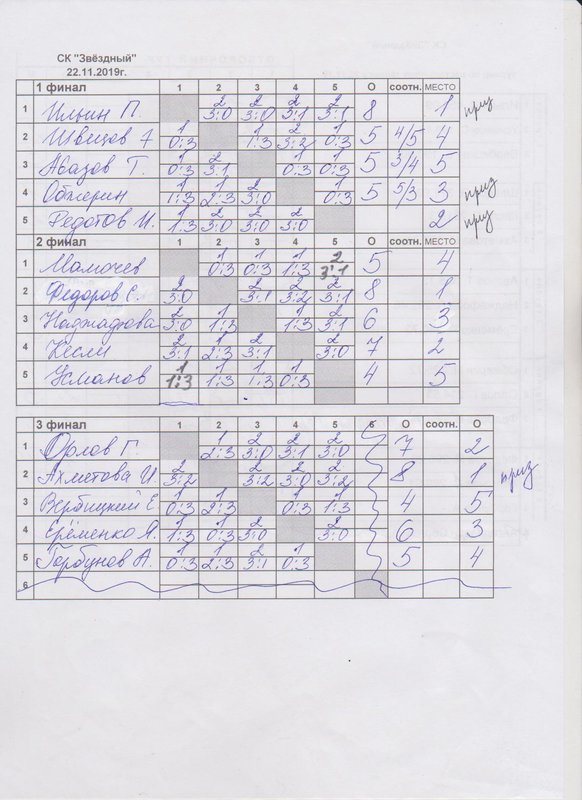 СК "Звёздный"
22.11.2019г.
1 финал 1 2 3 4 5 О соотн. МЕСТО
1 Ильин П. 2 3:0 2 3:0 2 3:1 2 3:1 8 1 приз
2 Швецов 1 0:3 1 1:3 2 3:2 1 0:3 5 4/5 4
3 Абазов Т. 1 0:3 2 3:1 1 0:3 1 0:3 5 3/4 5
4 1 1:3 1 2:3 2 3:0 1 0:3 5 5/3 3 приз
5 Федотов И. 1 1:3 2 3:0 2 3:0 2 3:0 2 приз
2 финал 1 2 3 4 5 О соотн. МЕСТО
1 Мамочев 1 0:3 1 0:3 1 1:3 2 3:1 5 4
2 Федоров С. 2 3:0 2 3:1 2 3:2 2 3:1 8 1
3 Наджафова 2 3:0 1 1:3 1 1:3 2 3:1 6 3
4 Кесли 2 3:1 1 2:3 2 3:1 2 3:0 7 2
5 Усманов 1 1:3 1 1:3 1 1:3 1 0:3 4 5
3 финал 1 2 3 4 5 6 О соотн. О
1 Орлов Г. 1 2:3 2 3:0 2 3:1 2 3:0 7 2
2 Ахметова И. 2 3:2 2 3:2 2 3:0 2 3:2 8 1 приз
3 Вербицкий Е 1 0:3 1 2:3 1 0:3 1 1:3 4 5
4 Ерёменко А. 1 1:3 1 0:3 2 3:0 2 3:0 6 3
5 Горбунов А. 1 0:3 1 1:3 2 3:1 1 0:3 5 4
6